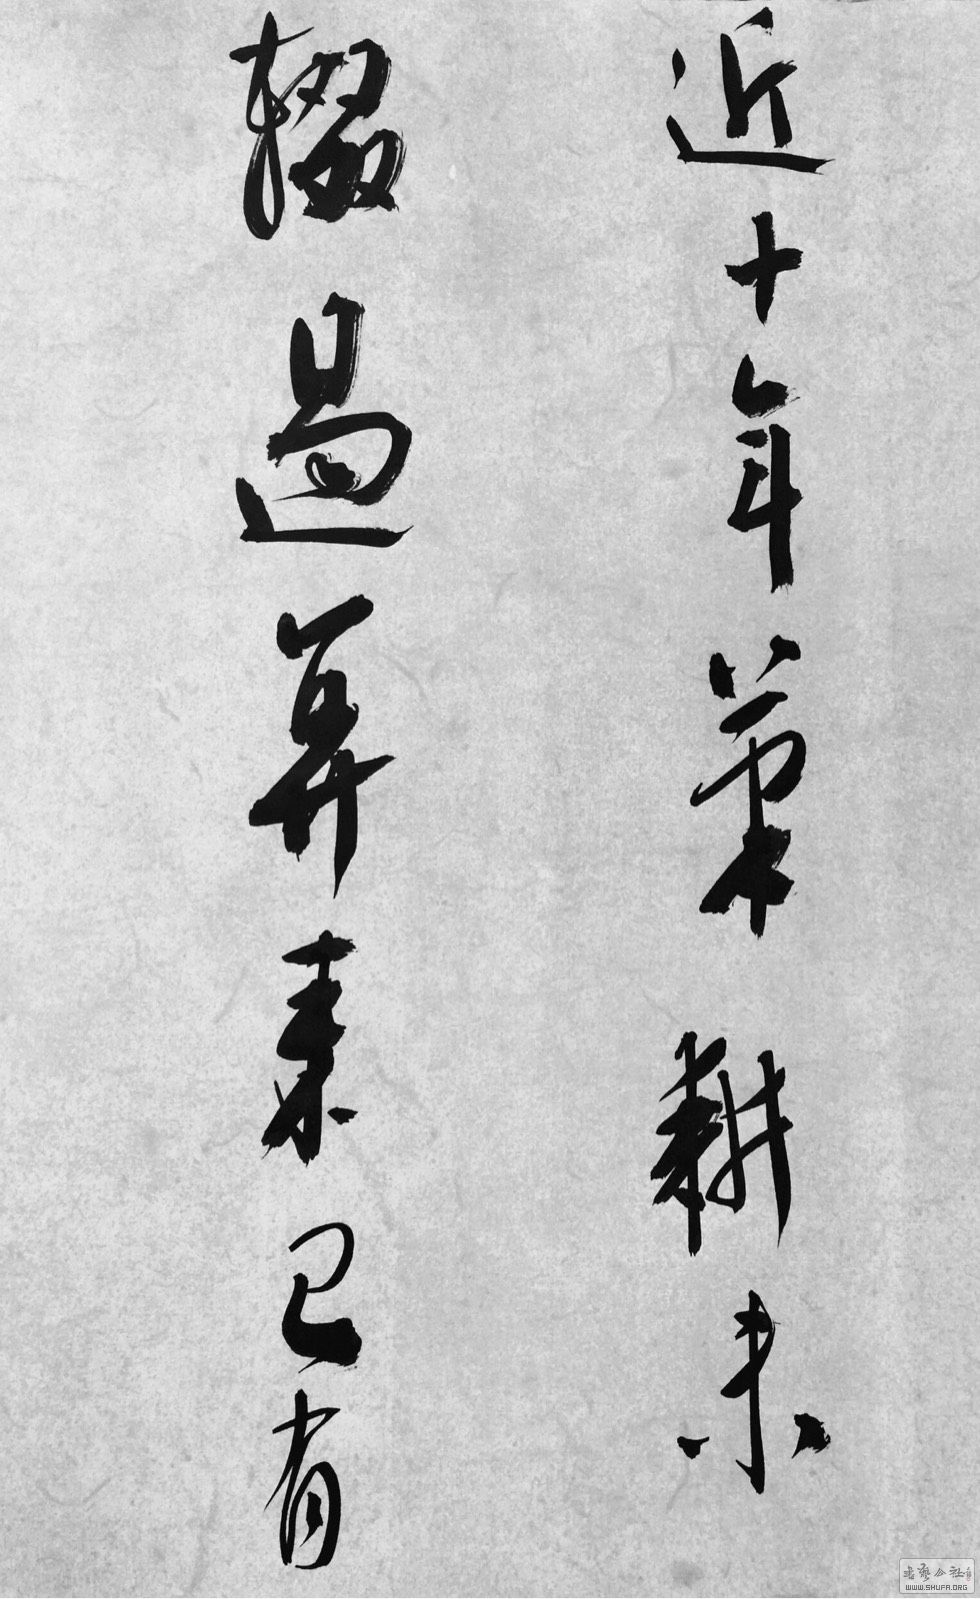 近十年筆耕未
輟過算来已有
書藝公社
WWW.SHUFA.ORG